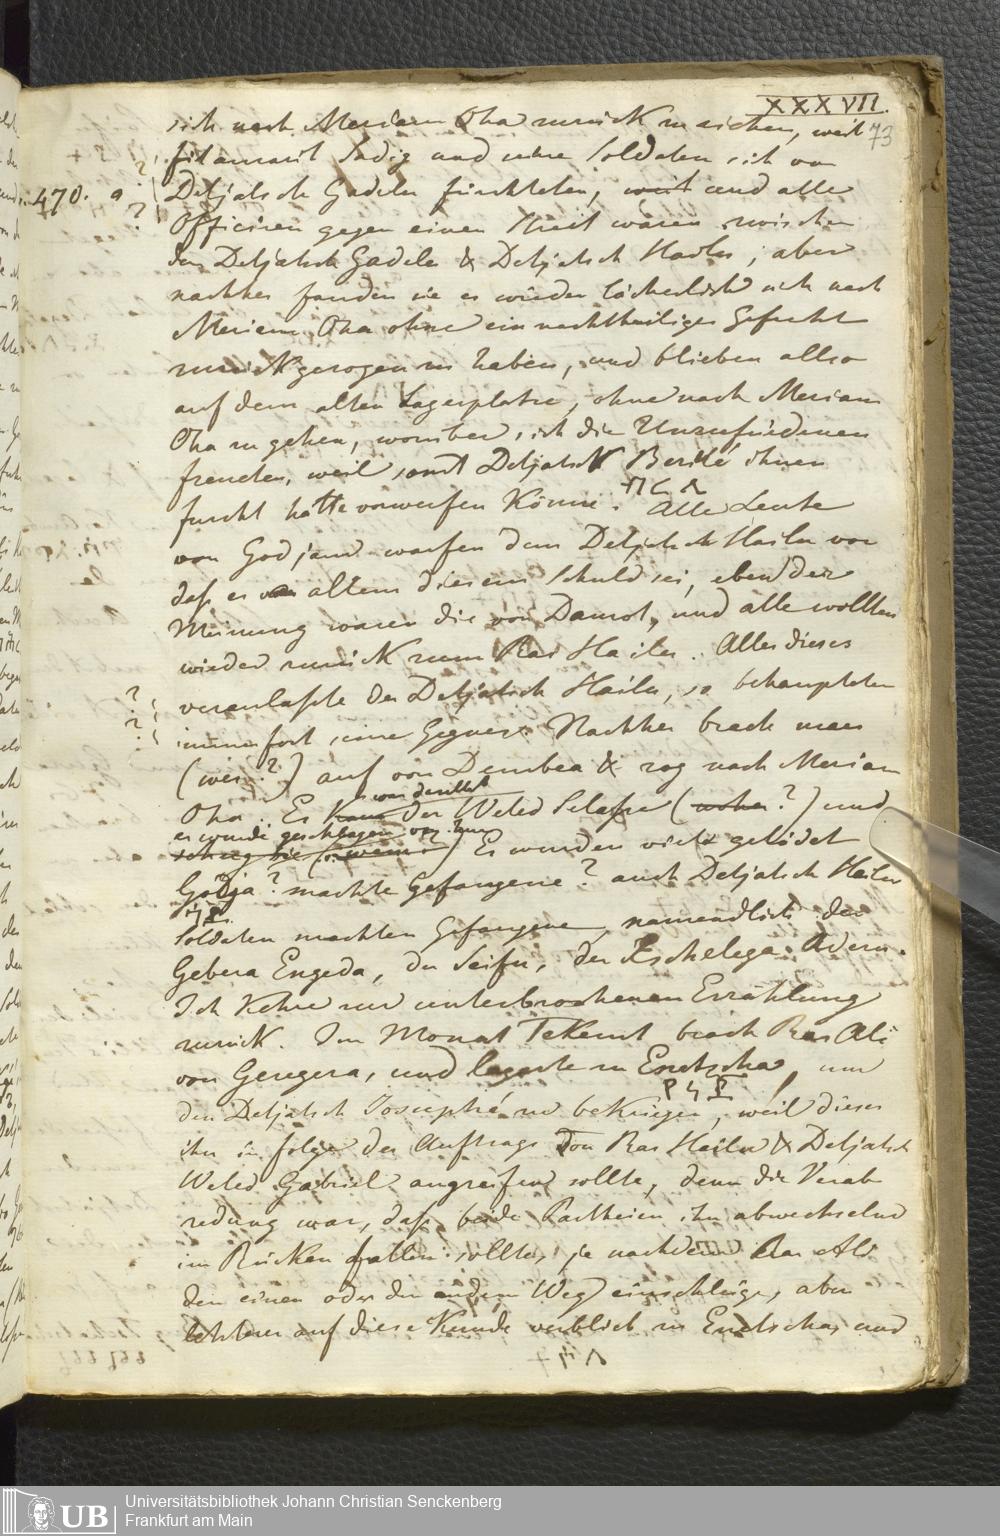 XXXVII.
73
sich nach Meriam Oha zurück zu ziehen, weil
fitaurarit Sadig und seine Soldaten sich vor
470. a
?
?
Detjatsch Gadelu fürchteten, weit und alle
Officiren gegen einen Streit waren zwischen
den Detjatsch Gadelu & Detjatsch Hailu; aber
nachher fanden sie es wieder lächerlich sich nach
Meriam Oha ohne ein nachtheiliges Gefecht
zurückgezogen zu haben, und blieben also
auf dem alten Lagerplatze, ohne nach Meriam
Oha zu gehen, worüber sich die Unzufriedenen
freuten, weil sonst Detjatsch Berilé ihnen
furcht hätte vorwerfen können. Alle Leute
von Godjam warfen dem Detjatsch Hailu vor
daß er an allem diesem Schuld sei, eben der
Meinung waren die von Damot, und alle wollten
wieder zurück zum Ras Hailu. Alles dieses
?
?
veranlaßte der Detjatsch Hailu, so behaupteten
immerfort seine Gegner. Nachher brach man
(wer?) auf von Dembea & zog nach Meriam
Oha. Es kam der Weled Selasse (woher?) und
war daselbst
es wurde geschlagen von ihm
schlug sie (wem?) Es wurden viele getödet
Godja? machte Gefangene? auch Detjatsch Hailu
Soldaten machten Gefangene, namendlich den
Gebera Engeda, den Seifu, den Eschelega Adera.
Ich kehre zur unterbrochenen Erzählung
zurück. Im Monat Tekemt brach Ras Ali
von Geregera, und lagerte zu Enetscha, um
den Detjatsch Josuphé zu bekriegen, weil dieser
ihn in folge des Auftrags von Ras Hailu & Detjatsch
Weled Gabriel angreifen sollte, denn die Verab
redung war, daß beide Partheien ihn abwechselnd
im Rücken fallen sollten, je nachdem Ras Ali
den einen oder den andern Weg einschlüge, aber
letzterer auf diese Kunde verblieb zu Enetscha, und
Universitätsbibliothek Johann Christian Senckenberg
Frankfurt am Main
UB